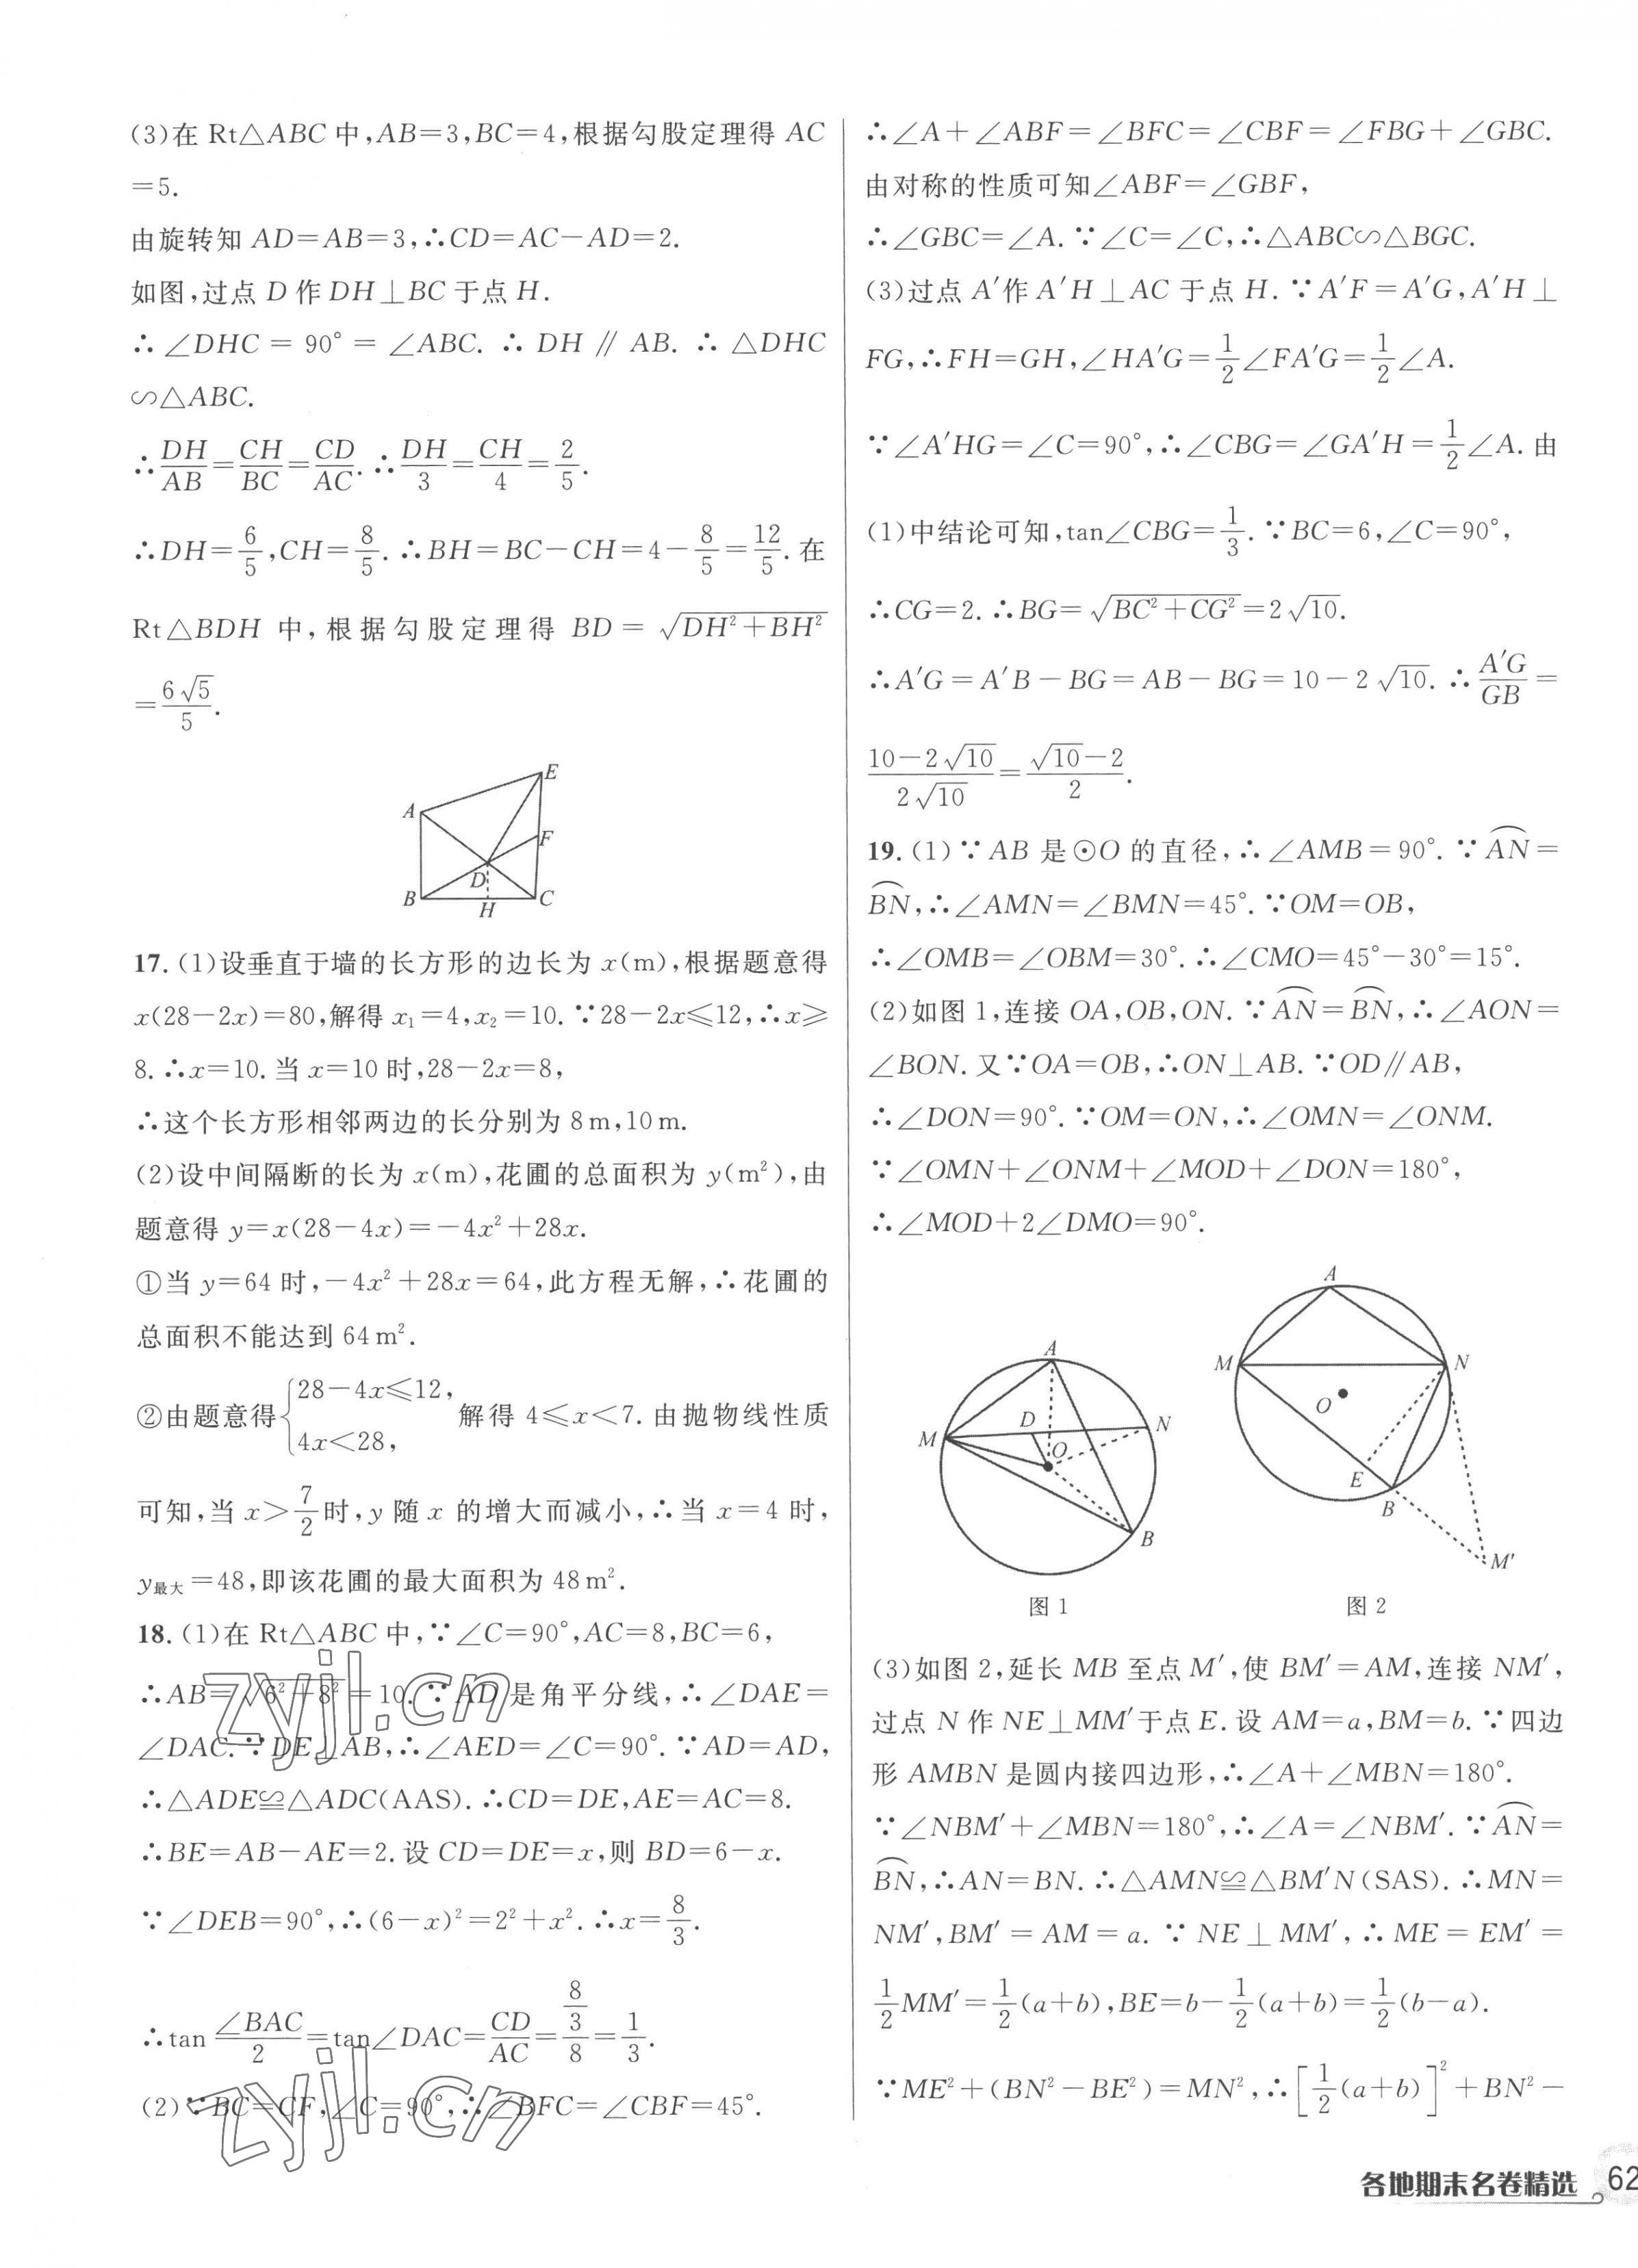 (3)在 Rt△ABC 中,AB=3,BC=4,根据勾股定理得 AC
=5.
由旋转知 AD=AB=3,∴CD=AC-AD=2.
如图,过点 D 作 DH⊥BC 于点 H.
∴ ∠DHC = 90° = ∠ABC. ∴ DH ∥ AB. ∴ △DHC
∽△ABC.
∴DH/AB=CH/BC=CD/AC. ∴DH/3=CH/4=2/5.
∴DH=6/5,CH=8/5. ∴BH=BC-CH=4-8/5=12/5. 在
Rt△BDH 中,根据勾股定理得 BD = √(DH²+BH²)
=6√5/5.
E
A
F
D
B
H
C
17. (1)设垂直于墙的长方形的边长为 x(m),根据题意得
x(28-2x)=80,解得 x₁=4,x₂=10. ∵28-2x≤12,∴x≥
8. ∴x=10. 当 x=10 时,28-2x=8,
∴这个长方形相邻两边的长分别为 8 m,10 m.
(2)设中间隔断的长为 x(m),花圃的总面积为 y(m²),由
题意得 y=x(28-4x)=-4x²+28x.
①当 y=64 时,-4x²+28x=64,此方程无解,∴花圃的
总面积不能达到 64 m².
②由题意得{28-4x≤12, 4x<28, 解得 4≤x<7. 由抛物线性质
可知,当 x>7/2时,y 随 x 的增大而减小,∴当 x=4 时,
y最大=48,即该花圃的最大面积为 48 m².
18. (1)在 Rt△ABC 中,∵∠C=90°,AC=8,BC=6,
∴AB=√(6²+8²)=10. ∵AD 是角平分线,∴∠DAE=
∠DAC. ∵DE⊥AB,∴∠AED=∠C=90°. ∵AD=AD,
∴△ADE≌△ADC(AAS). ∴CD=DE,AE=AC=8.
∴BE=AB-AE=2. 设 CD=DE=x,则 BD=6-x.
∵∠DEB=90°,∴(6-x)²=2²+x². ∴x=8/3.
∴tan ∠BAC/2=tan∠DAC=CD/AC=(8/3)/8=1/3.
(2)∵BC=CF,∠C=90°,∴∠BFC=∠CBF=45°.
∴∠A+∠ABF=∠BFC=∠CBF=∠FBG+∠GBC.
由对称的性质可知∠ABF=∠GBF,
∴∠GBC=∠A. ∵∠C=∠C,∴△ABC∽△BGC.
(3)过点 A′作 A′H⊥AC 于点 H. ∵A′F=A′G,A′H⊥
FG,∴FH=GH,∠HA′G=1/2∠FA′G=1/2∠A.
∵∠A′HG=∠C=90°,∴∠CBG=∠GA′H=1/2∠A. 由
(1)中结论可知,tan∠CBG=1/3. ∵BC=6,∠C=90°,
∴CG=2. ∴BG=√(BC²+CG²)=2√10.
∴A′G=A′B-BG=AB-BG=10-2√10. ∴A′G/GB=
(10-2√10)/(2√10)=(√10-2)/2.
19. (1)∵AB 是⊙O 的直径,∴∠AMB=90°. ∵⌒AN=
⌒BN,∴∠AMN=∠BMN=45°. ∵OM=OB,
∴∠OMB=∠OBM=30°. ∴∠CMO=45°-30°=15°.
(2)如图 1,连接 OA,OB,ON. ∵⌒AN=⌒BN,∴∠AON=
∠BON. 又∵OA=OB,∴ON⊥AB. ∵OD∥AB,
∴∠DON=90°. ∵OM=ON,∴∠OMN=∠ONM.
∵∠OMN+∠ONM+∠MOD+∠DON=180°,
∴∠MOD+2∠DMO=90°.
A
M
D
N
O
B
图 1
A
M
N
O
E
B
M′
图 2
(3)如图 2,延长 MB 至点 M′,使 BM′=AM,连接 NM′,
过点 N 作 NE⊥MM′于点 E. 设 AM=a,BM=b. ∵四边
形 AMBN 是圆内接四边形,∴∠A+∠MBN=180°.
∵∠NBM′+∠MBN=180°,∴∠A=∠NBM′. ∵⌒AN=
⌒BN,∴AN=BN. ∴△AMN≌△BM′N(SAS). ∴MN=
NM′,BM′=AM=a. ∵NE⊥MM′,∴ME=EM′=
1/2MM′=1/2(a+b),BE=b-1/2(a+b)=1/2(b-a).
∵ME²+(BN²-BE²)=MN²,∴[1/2(a+b)]²+BN²-
zyjl.cn
zyjl.cn
各地期末名卷精选
62